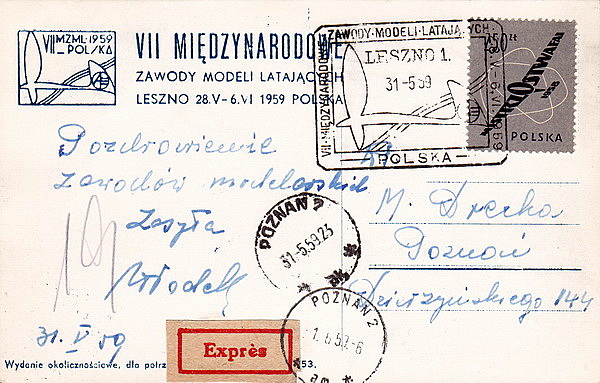 VII MZML-1959
POLSKA
VII MIĘDZYNARODOWE
ZAWODY MODELI LATAJĄCYCH
LESZNO 28.V-6.VI 1959 POLSKA
VII-MIĘDZYNARODOWE
ZAWODY-MODELI-LATAJĄCYCH
V-6.VI-1959
LESZNO 1.
31-5.59
POLSKA
1,50 ZŁ
1958
POLSKA
Pozdrowienie
zawodów modelarskich
zasyła
Włodek
31. V 59
M. Drecka
Poznań
Dzierżyńskiego 144
POZNAŃ 2
31.-5.59.23
POZNAŃ 2
1.6.59.-6
Exprès
Wydanie okolicznościowe, dla potrz
53.